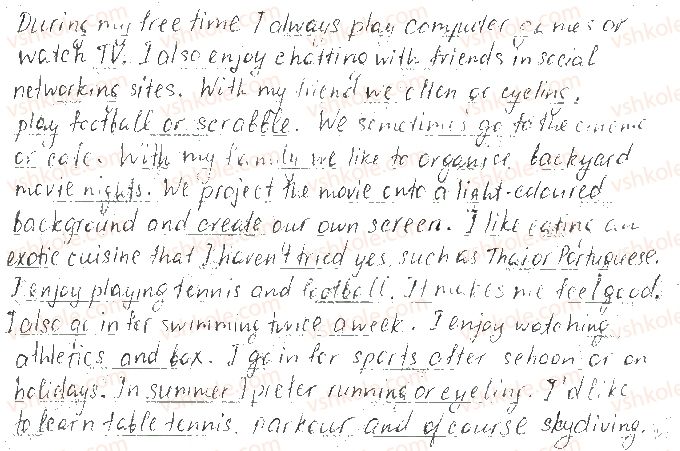 During my free time I always play computer games or
watch TV. I also enjoy chatting with friends in social
networking sites. With my friend we often go cycling,
play football or scrabble. We sometimes go to the cinema
or cafe. With my family we like to organise backyard
movie nights. We project the movie onto a light-coloured
background and create our own screen. I like eating an
exotic cuisine that I haven't tried yes, such as Thai or Portuguese.
I enjoy playing tennis and football. It makes me feel good.
I also go in for swimming twice a week. I enjoy watching
athletics and box. I go in for sports after schoon or on
holidays. In summer I prefer running or cycling. I'd like
to learn table tennis, parkour and of course skydiving.